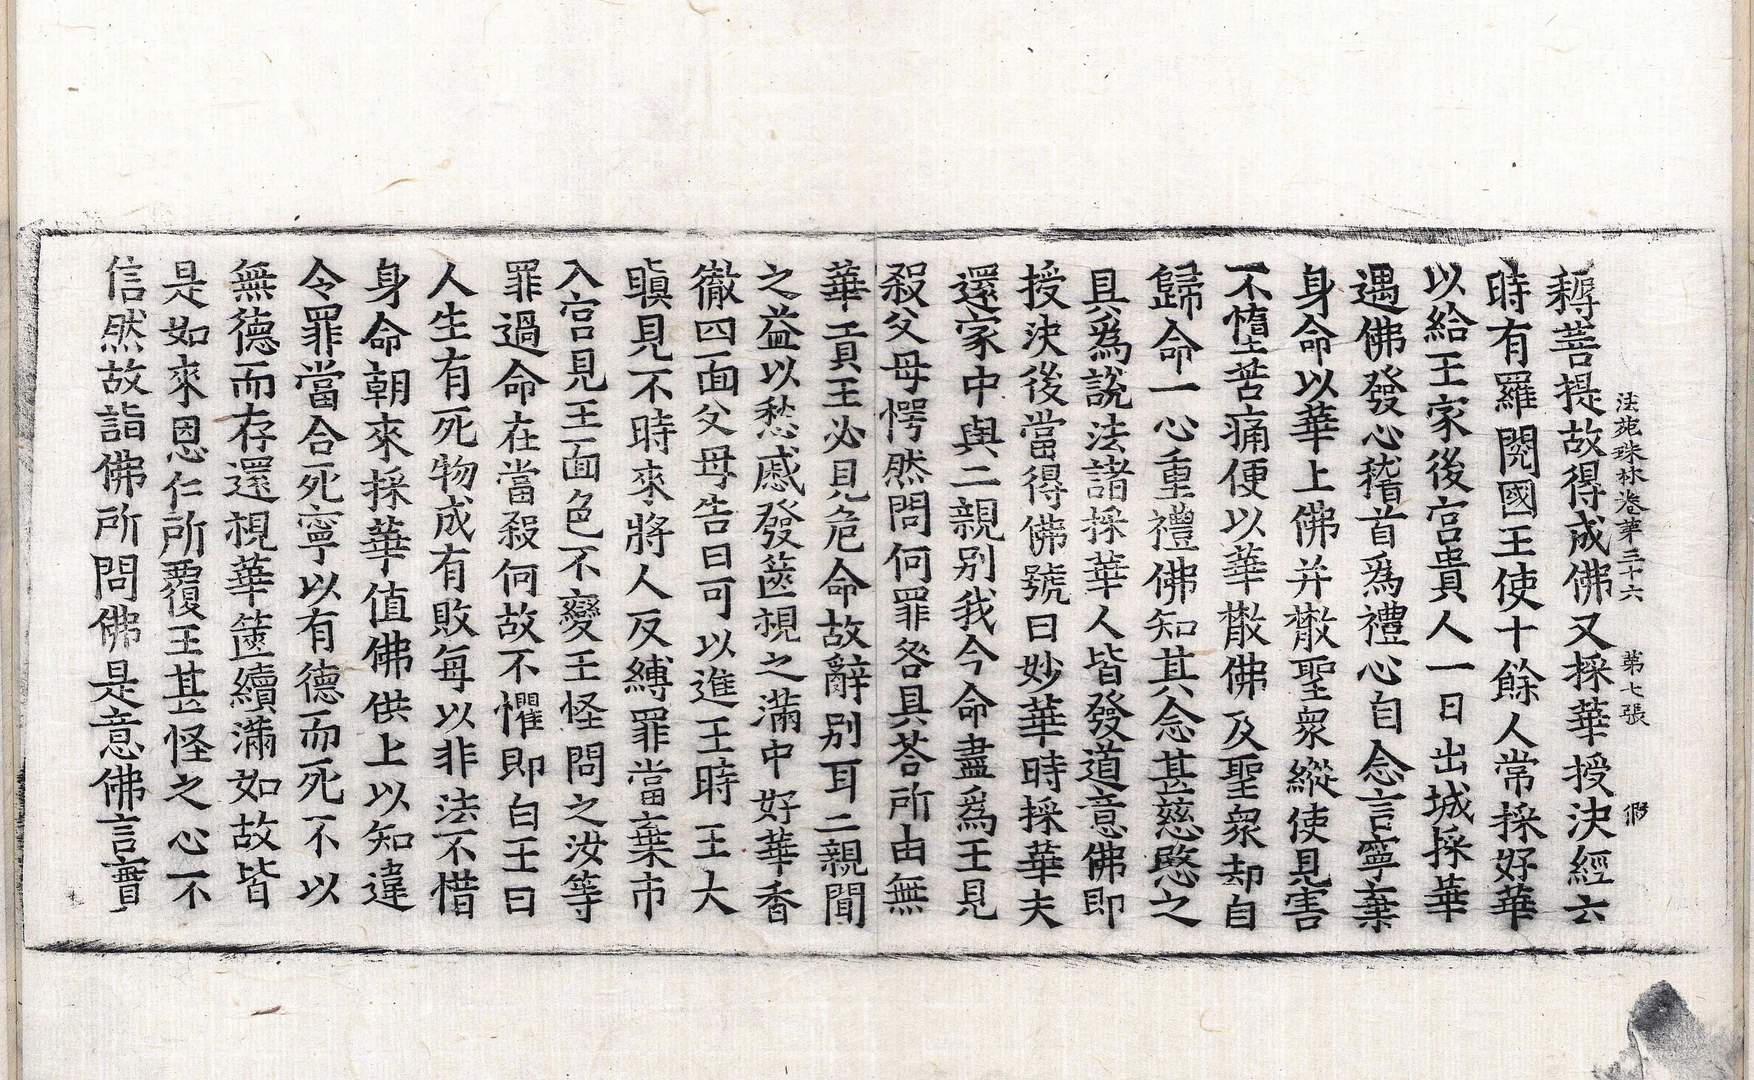 法苑珠林卷第三十六　第七張　㣲
耨菩提故得成佛又採華授決經云
時有羅閱國王使十餘人常採好華
以給王家後宮貴人一日出城採華
遇佛發心稽首爲禮心自念言寧棄
身命以華上佛并散聖衆縱使見害
不墮苦痛便以華散佛及聖衆却自
歸命一心重禮佛知其念甚慈愍之
具爲說法諸採華人皆發道意佛即
授決後當得佛號曰妙華時採華夫
還家中與二親別我今命盡爲王見
殺父母愕然問何罪咎具荅所由無
華貢王必見危命故辭別耳二親聞
之益以愁慼發篋視之滿中好華香
徹四面父母告曰可以進王時王大
瞋見不時來將人反縛罪當棄市
入宮見王面色不變王怪問之汝等
罪過命在當殺何故不懼即白王曰
人生有死物成有敗每以非法不惜
身命朝來採華值佛供上以知違
令罪當合死寧以有德而死不以
無德而存還視華篋續滿如故皆
是如來恩仁所覆王甚怪之心不
信然故詣佛所問佛是意佛言實